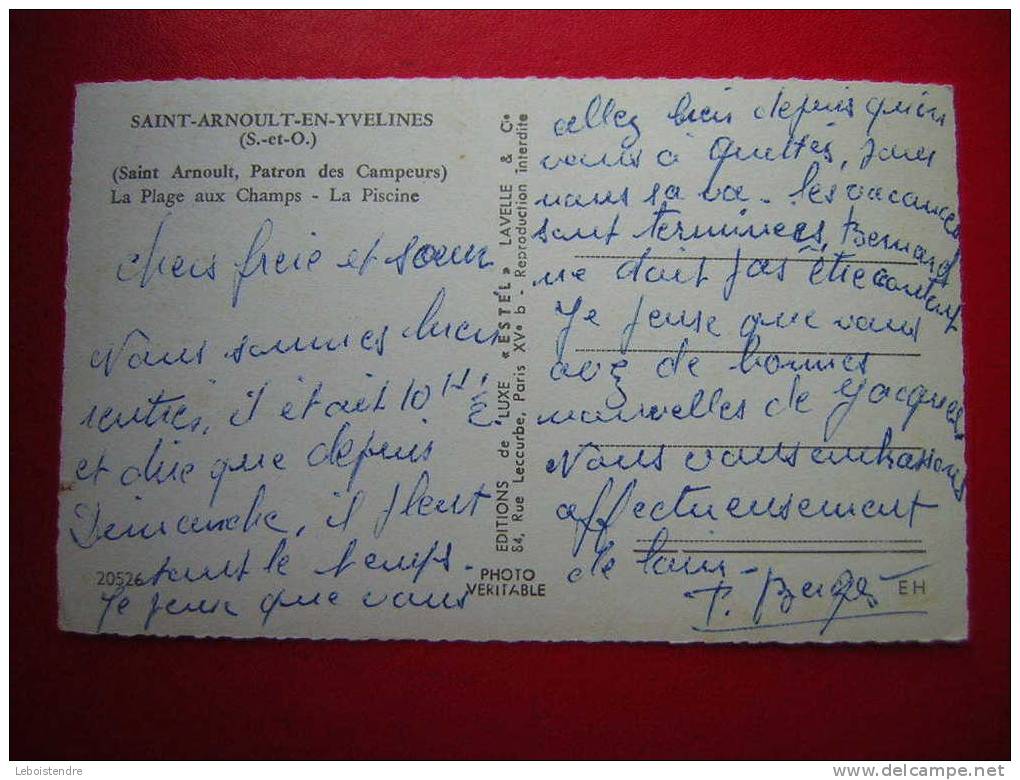 SAINT-ARNOULT-EN-YVELINES
(S.-et-O.)
(Saint Arnoult, Patron des Campeurs)
La Plage aux Champs - La Piscine
chers frère et soeur
Nous sommes bien
rentrés, il était 10 H.
et dire que depuis
Dimanche, il pleut
tout le temps.
Je pense que vous
20526
EDITIONS de LUXE « ESTEL » LAVELLE & Cie
84, Rue Leccurbe, Paris XVe b - Reproduction interdite
PHOTO
VERITABLE
allez bien depuis qu'on
vous à quittés, pour
nous sa va - les vacances
sont terminées, Bernard
ne doit pas être content
Je pense que vous
avez de bonnes
nouvelles de Jacques
Nous vous embrassons
affectueusement
de loin -
EH
Leboistendre
www.delcampe.net